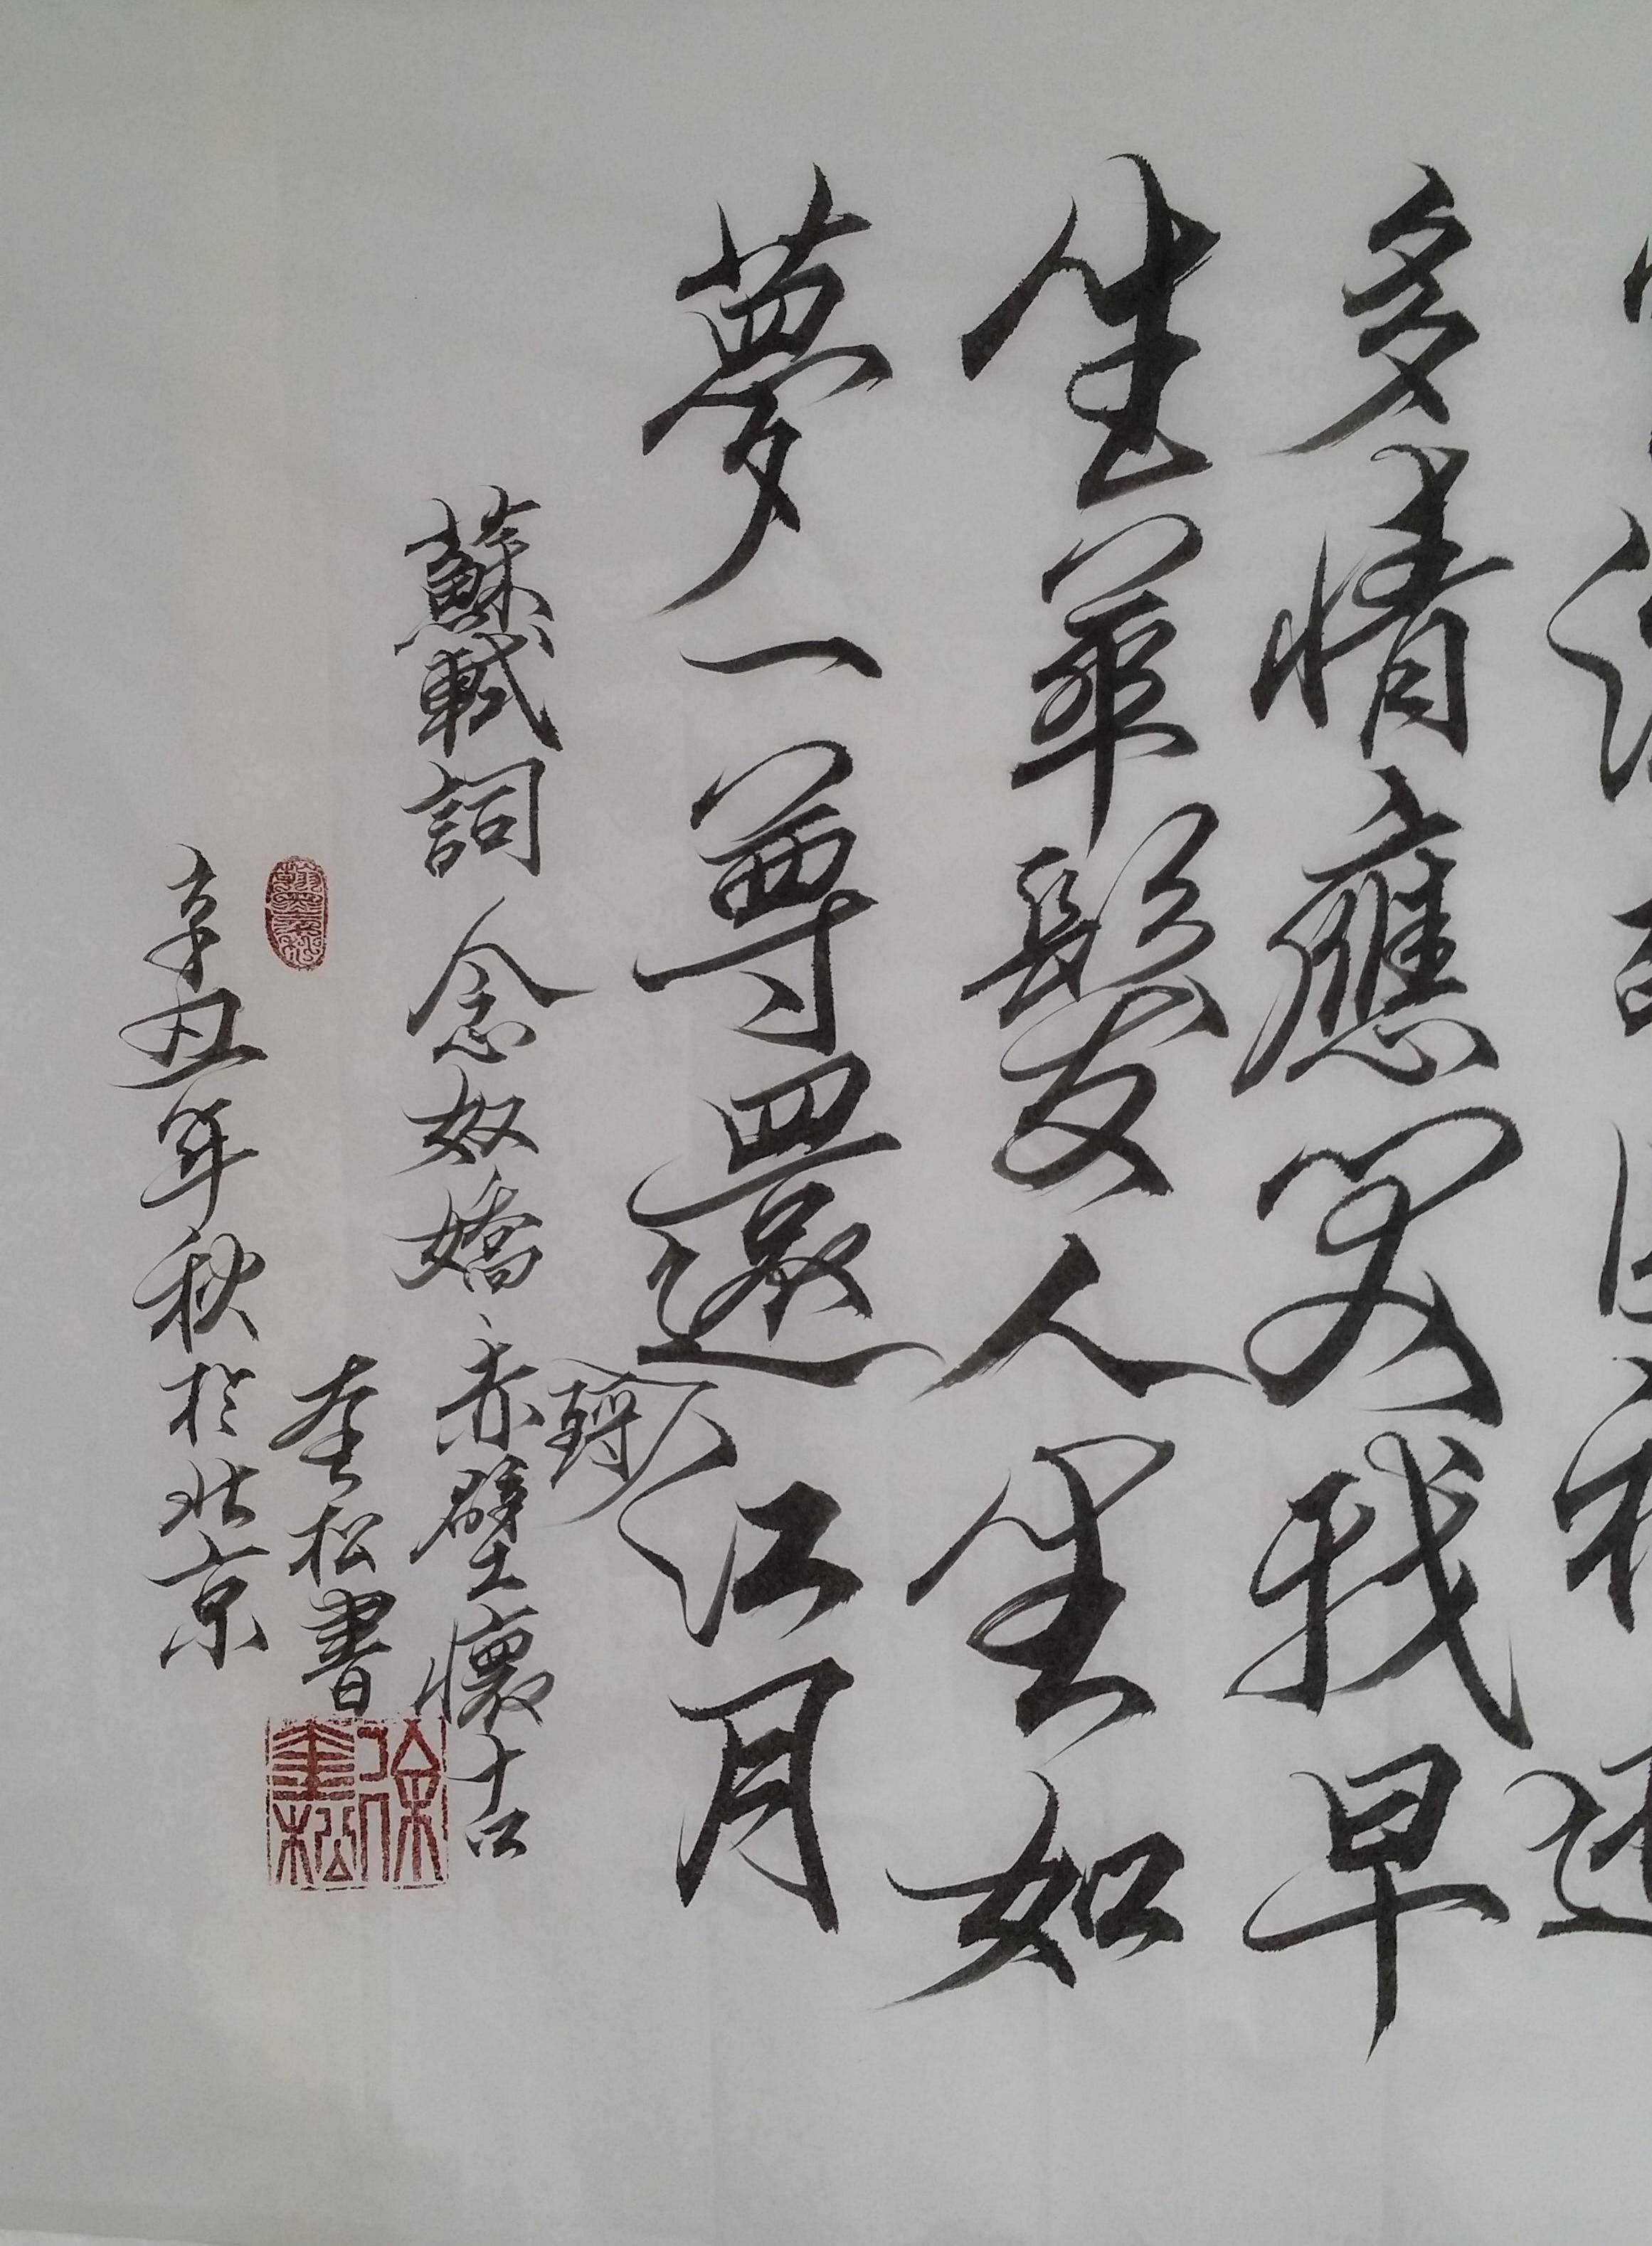 多情應笑我早
生華髮人生如
夢一尊還江月
酹
蘇軾詞念奴嬌赤壁懷古
奎松書
辛丑年秋於北京
徐奎松